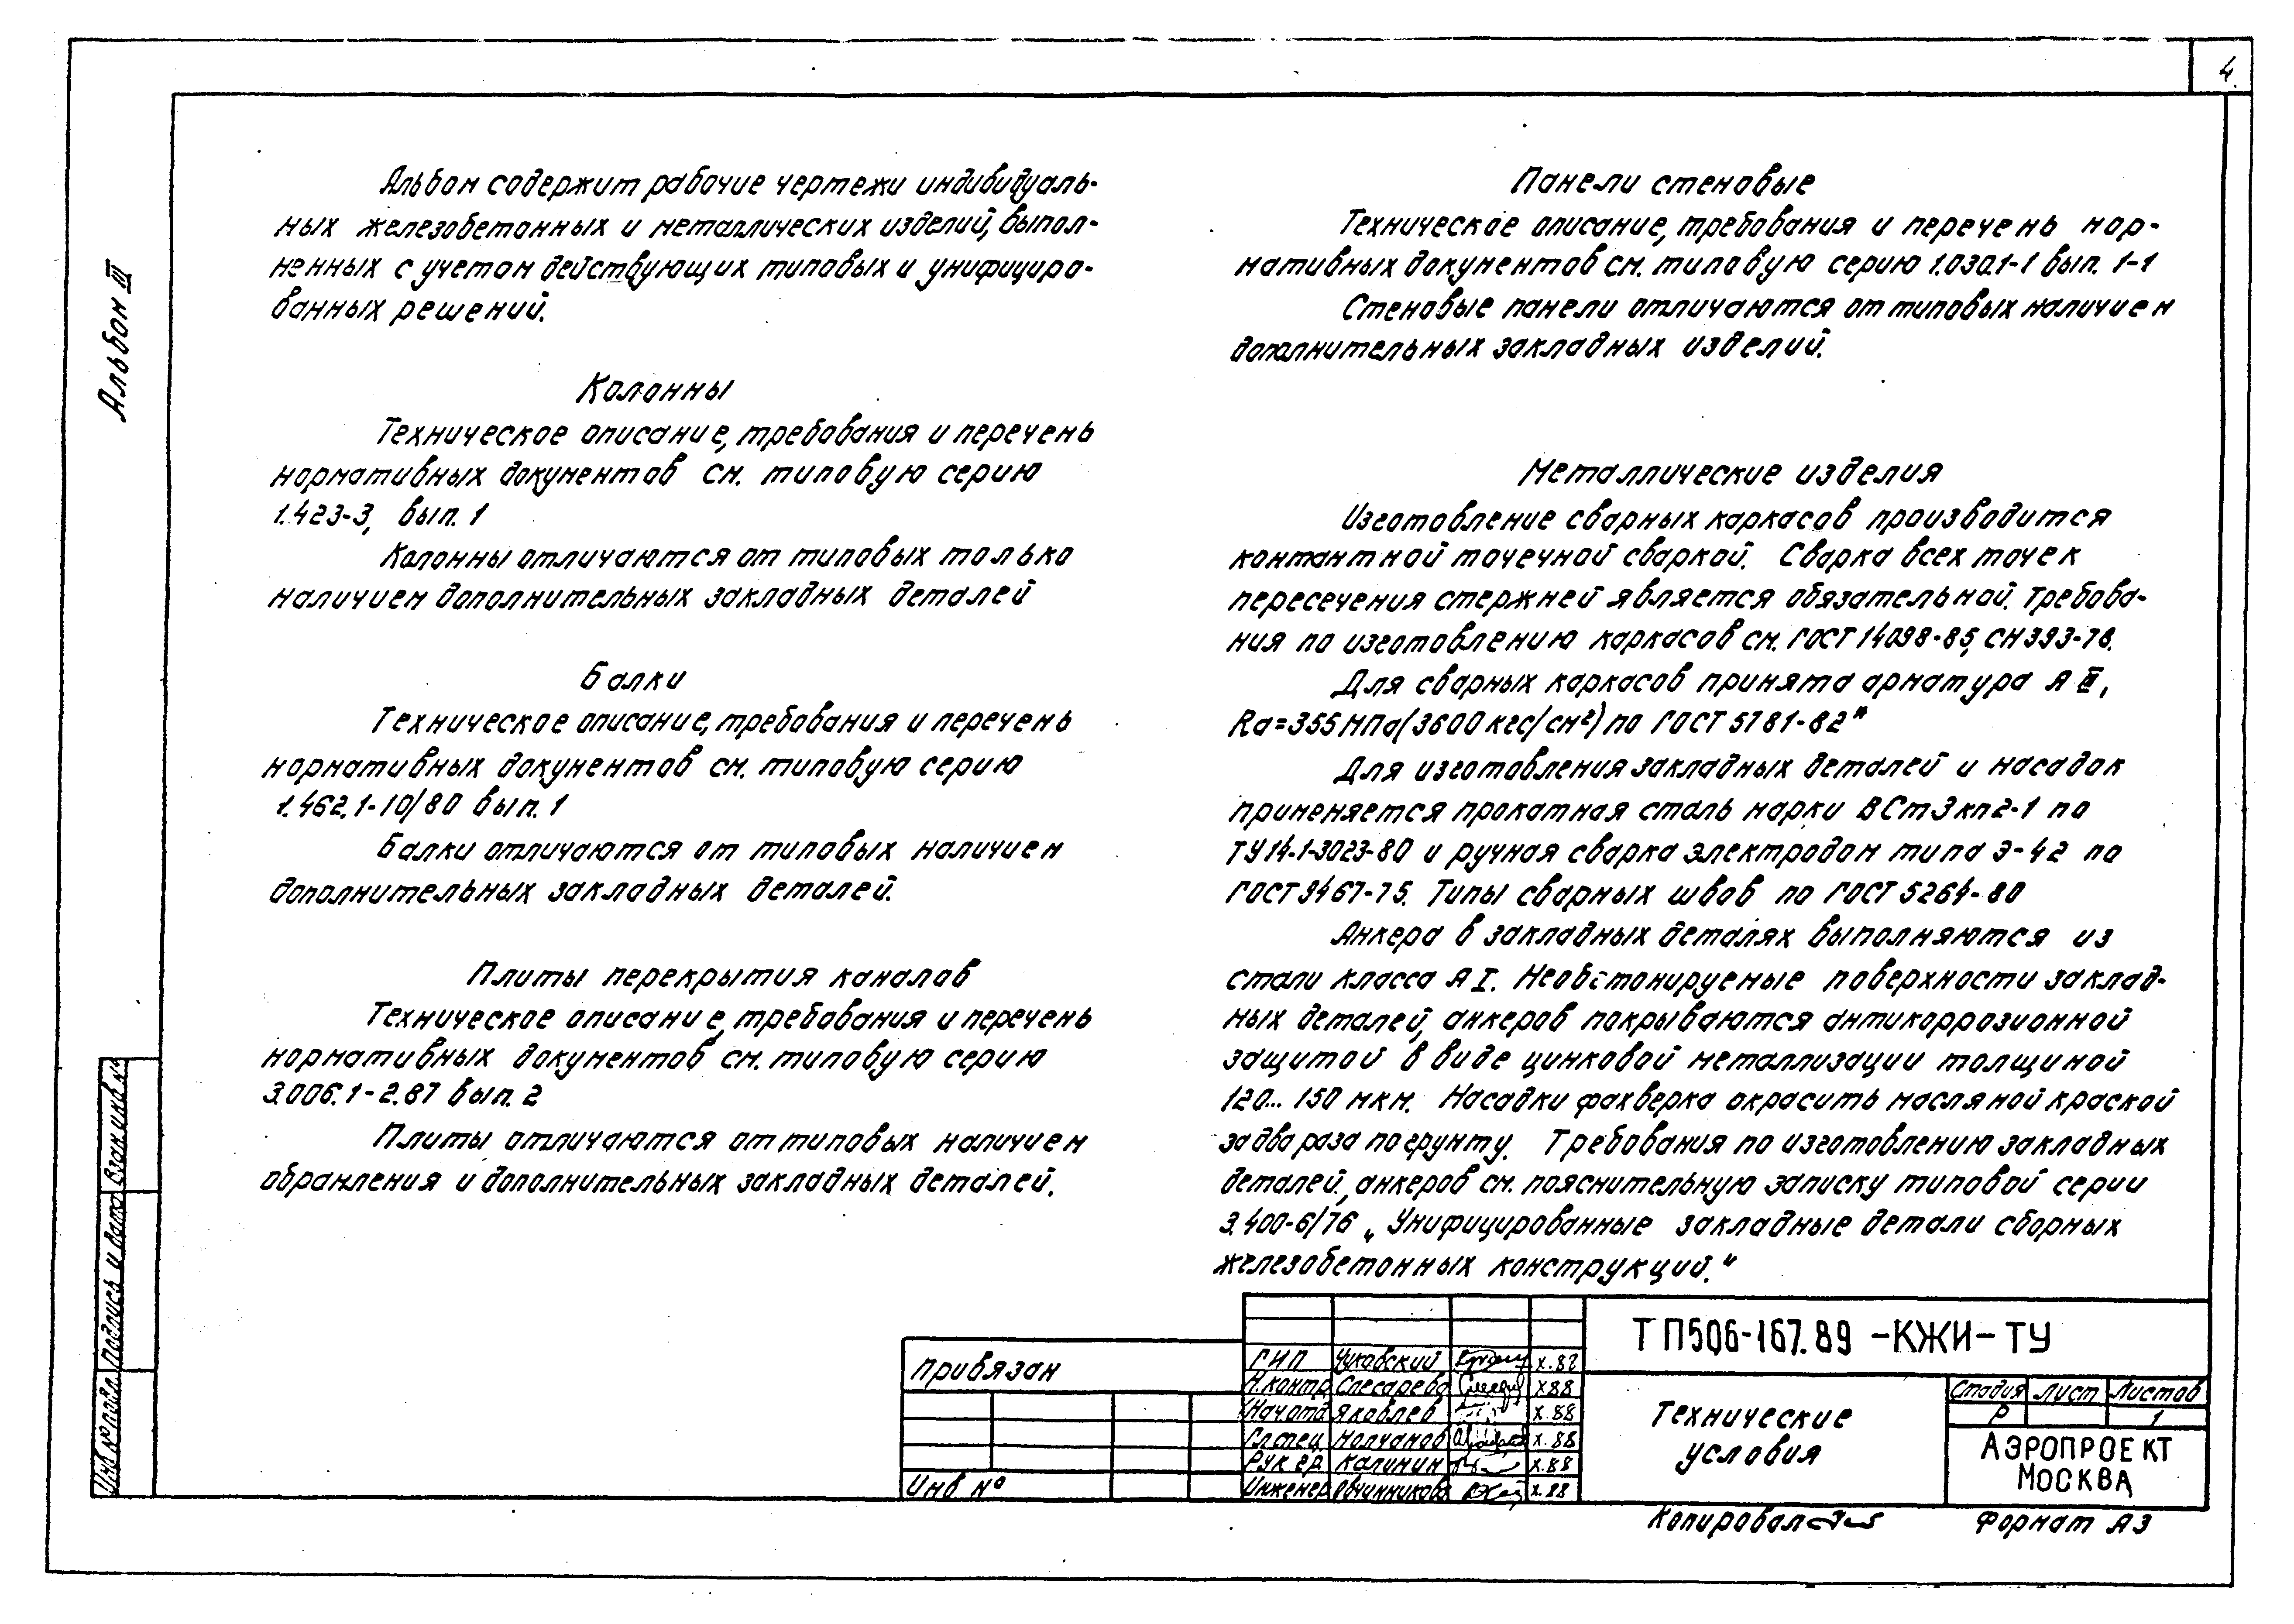 4
Альбом III
Альбом содержит рабочие чертежи индивидуаль-
ных железобетонных и металлических изделий, выпол-
ненных с учетом действующих типовых и унифициро-
ванных решений.
Колонны
Техническое описание, требования и перечень
нормативных документов см. типовую серию
1.423-3, вып. 1
Колонны отличаются от типовых только
наличием дополнительных закладных деталей
Балки
Техническое описание, требования и перечень
нормативных документов см. типовую серию
1.462.1-10/80 вып. 1
Балки отличаются от типовых наличием
дополнительных закладных деталей.
Плиты перекрытия каналов
Техническое описание, требования и перечень
нормативных документов см. типовую серию
3.006.1-2.87 вып. 2
Плиты отличаются от типовых наличием
обрамления и дополнительных закладных деталей.
Панели стеновые
Техническое описание, требования и перечень нор-
мативных документов см. типовую серию 1.030.1-1 вып. 1-1
Стеновые панели отличаются от типовых наличием
дополнительных закладных изделий.
Металлические изделия
Изготовление сварных каркасов производится
контактной точечной сваркой. Сварка всех точек
пересечения стержней является обязательной. Требова-
ния по изготовлению каркасов см. ГОСТ 14098-85, СН 393-78.
Для сварных каркасов принята арматура А III,
Ra=355МПа(3600 кгс/см²) по ГОСТ 5781-82*
Для изготовления закладных деталей и насадок
применяется прокатная сталь марки ВСт3кп2-1 по
ТУ14-1-3023-80 и ручная сварка электродом типа Э-42 по
ГОСТ 9467-75. Типы сварных швов по ГОСТ 5264-80
Анкера в закладных деталях выполняются из
стали класса А I. Необетонируемые поверхности заклад-
ных деталей, анкеров покрываются антикоррозионной
защитой в виде цинковой металлизации толщиной
120... 150 мкм. Насадки фахверка окрасить масляной краской
за два раза по грунту. Требования по изготовлению закладных
деталей, анкеров см. пояснительную записку типовой серии
3.400-6/76 „Унифицированные закладные детали сборных
железобетонных конструкций."
Привязан
Инв №
ГИП Чуковский Х.88
Н.контр Слесарева Х88
Нач отд Яковлев Х.88
Гл спец Молчанов Х.88
Рук гр Калинин Х.88
Инженер Овчинникова Х.88
ТП506-167.89 -КЖИ-ТУ
Технические
условия
Стадия Лист Листов
Р 1
АЭРОПРОЕКТ
МОСКВА
Копировал
Формат А3
Взам инв №
Подпись и дата
Инв № подл.